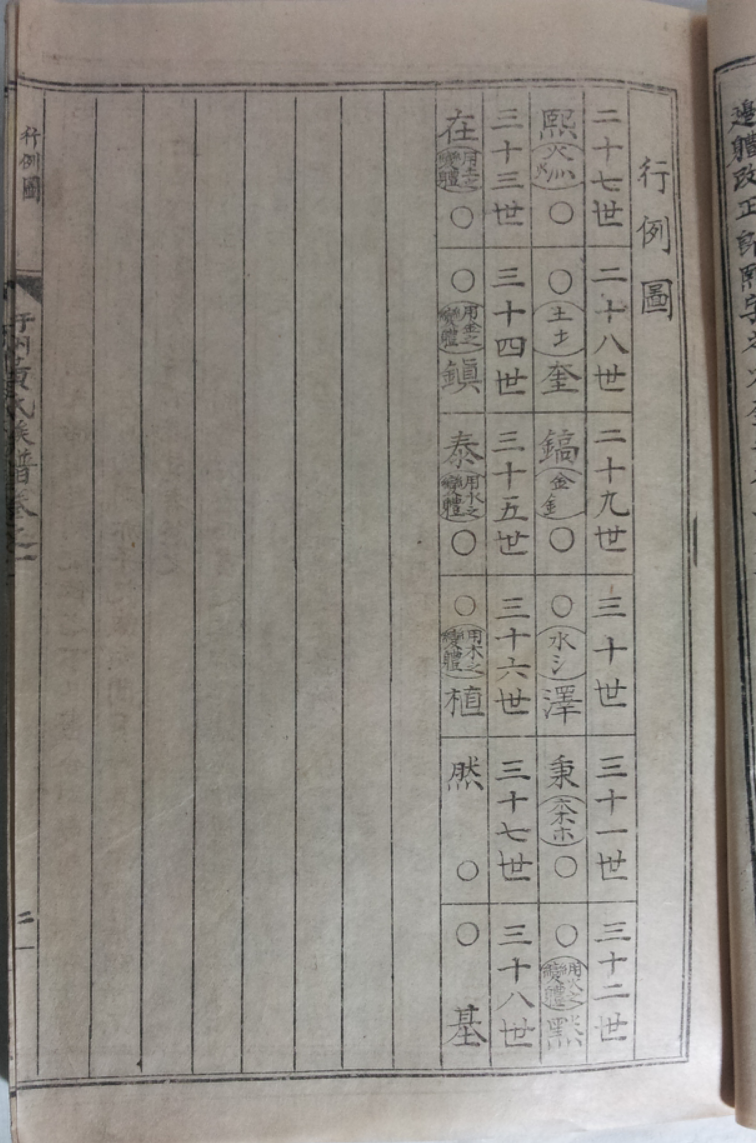 行例圖
二十七世 二十八世 二十九世 三十世 三十一世 三十二世
熙 火灬 ○ ○ 土 奎 鎬 金釒 ○ ○ 水氵 澤 秉 木 ○ ○ 用火之變體
三十三世 三十四世 三十五世 三十六世 三十七世 三十八世
在 用土之變體 ○ ○ 用金之變體 鎮 泰 用水之變體 ○ ○ 用木之變體 植 然 ○ ○ 基
行例圖
州黃氏族譜卷之一
二